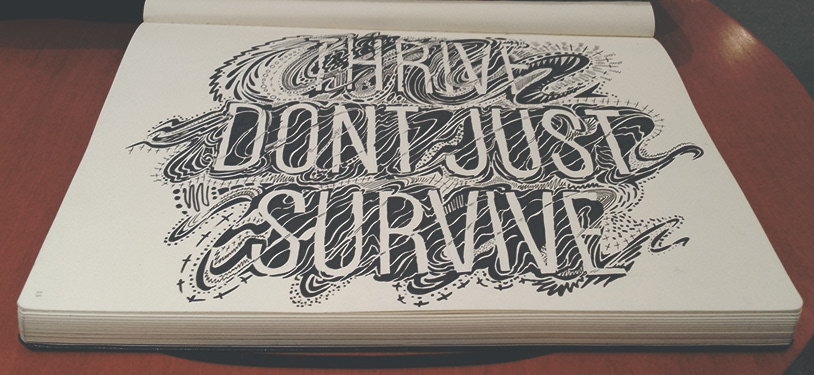 THRIVE
DONT JUST
SURVIVE